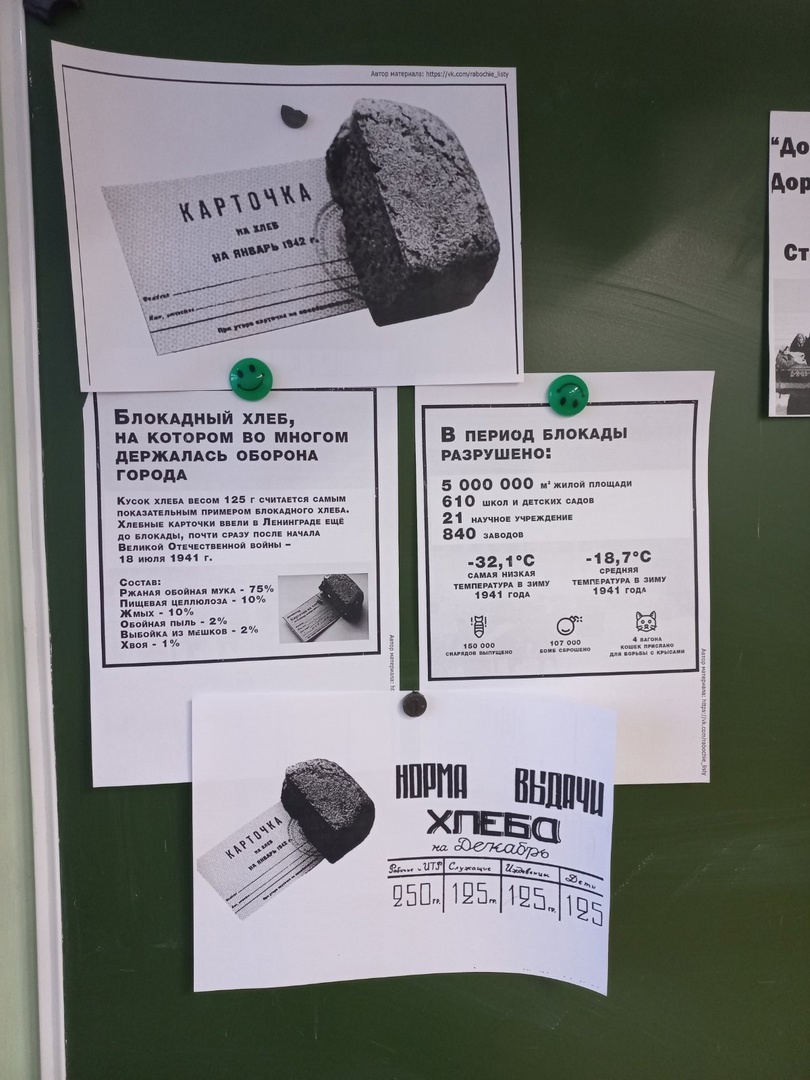 Автор материала: https://vk.com/rabochie_listy
КАРТОЧКА
НА ХЛЕБ
НА ЯНВАРЬ 1942 г.
Фамилия
Имя, отчество
При утере карточка не
"До
Дор
Ст
Блокадный хлеб,
на котором во многом
держалась оборона
города
Кусок хлеба весом 125 г считается самым
показательным примером блокадного хлеба.
Хлебные карточки ввели в Ленинграде ещё
до блокады, почти сразу после начала
Великой Отечественной войны –
18 июля 1941 г.
Состав:
Ржаная обойная мука - 75%
Пищевая целлюлоза - 10%
Жмых - 10%
Обойная пыль - 2%
Выбойка из мешков - 2%
Хвоя - 1%
Автор материала: ht
В период блокады
разрушено:
5 000 000 м² жилой площади
610 школ и детских садов
21 научное учреждение
840 заводов
-32,1°C
самая низкая
температура в зиму
1941 года
-18,7°C
средняя
температура в зиму
1941 года
150 000
снарядов выпущено
107 000
бомб сброшено
4 вагона
кошек прислано
для борьбы с крысами
Автор материала: https://vk.com/rabochie_listy
КАРТОЧКА
НА ХЛЕБ
НА ЯНВАРЬ 1942 г.
НОРМА ВЫДАЧИ
ХЛЕБА
на Декабрь
Рабочие и ИТР Служащие Иждивенцы Дети
250 гр. 125 гр. 125 гр. 125